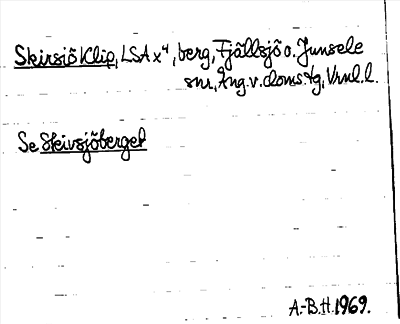 Skirsjö Klip, LSA x⁴, berg, Fjällsjö o. Junsele
snr, Ång. v. doms.tg, Vrnl. l.
Se Skivsjöberget
A.-B.H. 1969.